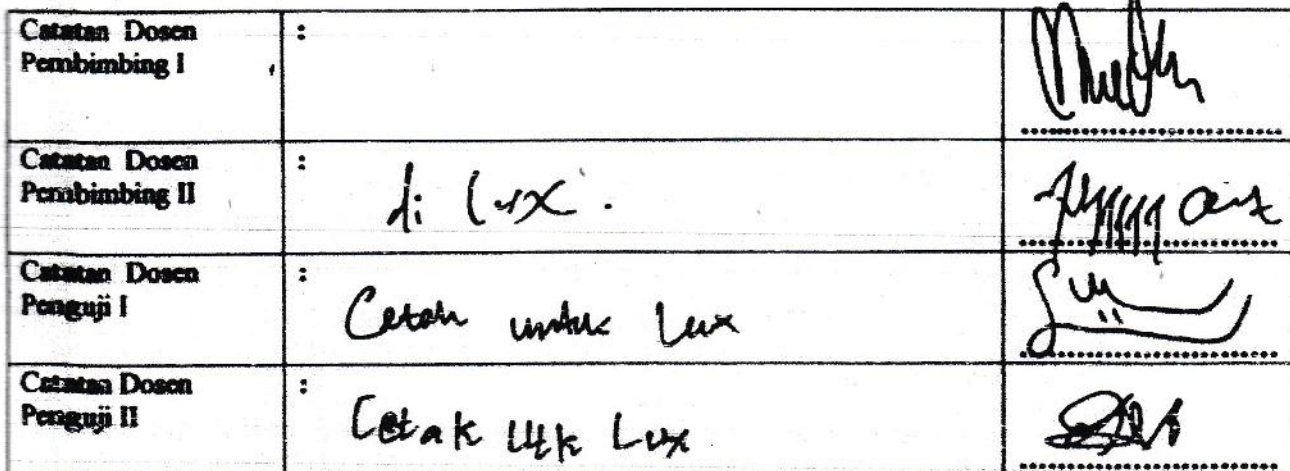 Catatan Dosen :
Pembimbing I
Catatan Dosen :
Pembimbing II
di lux.
Catatan Dosen :
Penguji I
Cetak untuk Lux
Catatan Dosen :
Penguji II
Cetak utk Lux